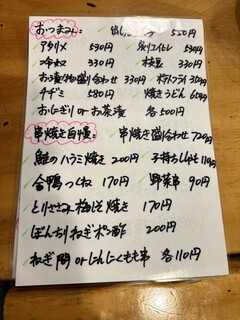 おつまみ: 出し 550円
タタリメ 590円 炙りエイヒレ 590円
冷奴 330円 枝豆 330円
お漬け物盛り合わせ 330円 ポテトフライ
チヂミ 580円 焼きうどん
おにぎり or お茶漬 各500円
串焼き自慢 串焼き盛り合わせ 720円
鮭のハラミ焼き 200円 子持ちししゃも 110円
合鴨つくね 170円 野菜串 90円
とりささみ梅しそ焼き 170円
ぼんちりねぎポン酢 200円
ねぎ間 or にんにくもも串 各110円